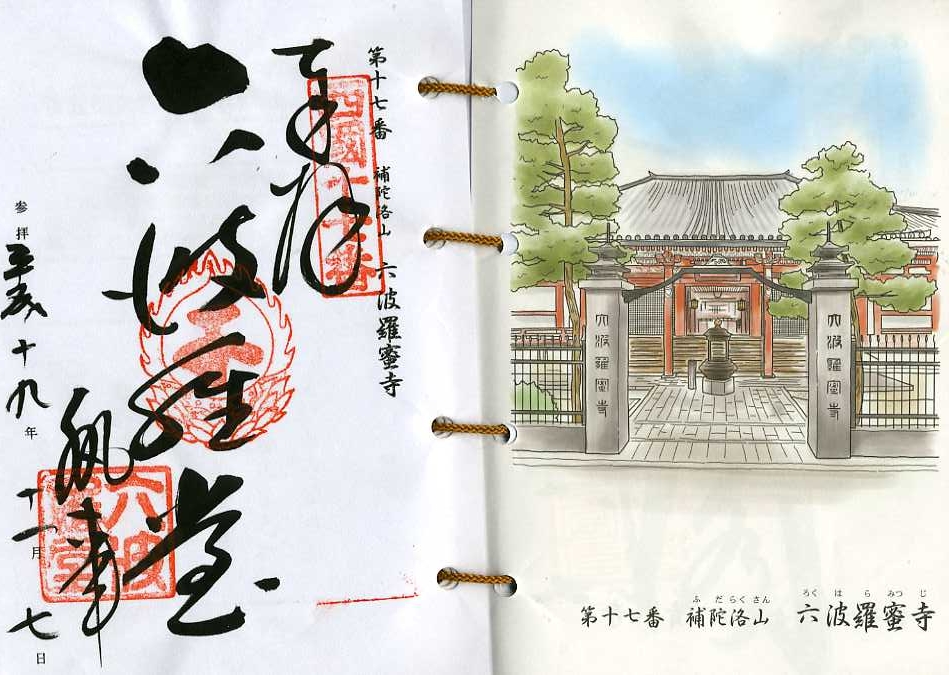 第十七番 補陀洛山 六波羅蜜寺
奉拝
西國十七番
六波羅堂
六波羅堂
参拝 平成十九年十一月七日
六波羅蜜寺
六波羅蜜寺
ふだらくさん ろくはらみつじ
第十七番 補陀洛山 六波羅蜜寺